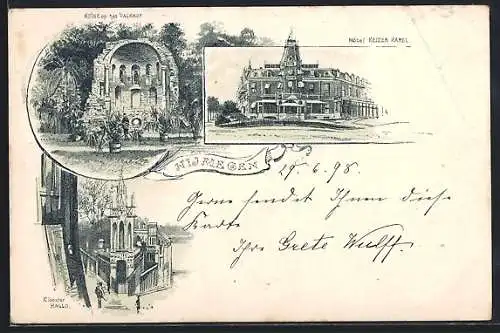 RUÏNE OP HET VALKHOF
HÔTEL KEIZER KAREL
NIJMEGEN
29-6-98.
Gerne sendet Ihnen diese
Karte
Ihre Grete Wulff.
Klooster
HALLO.